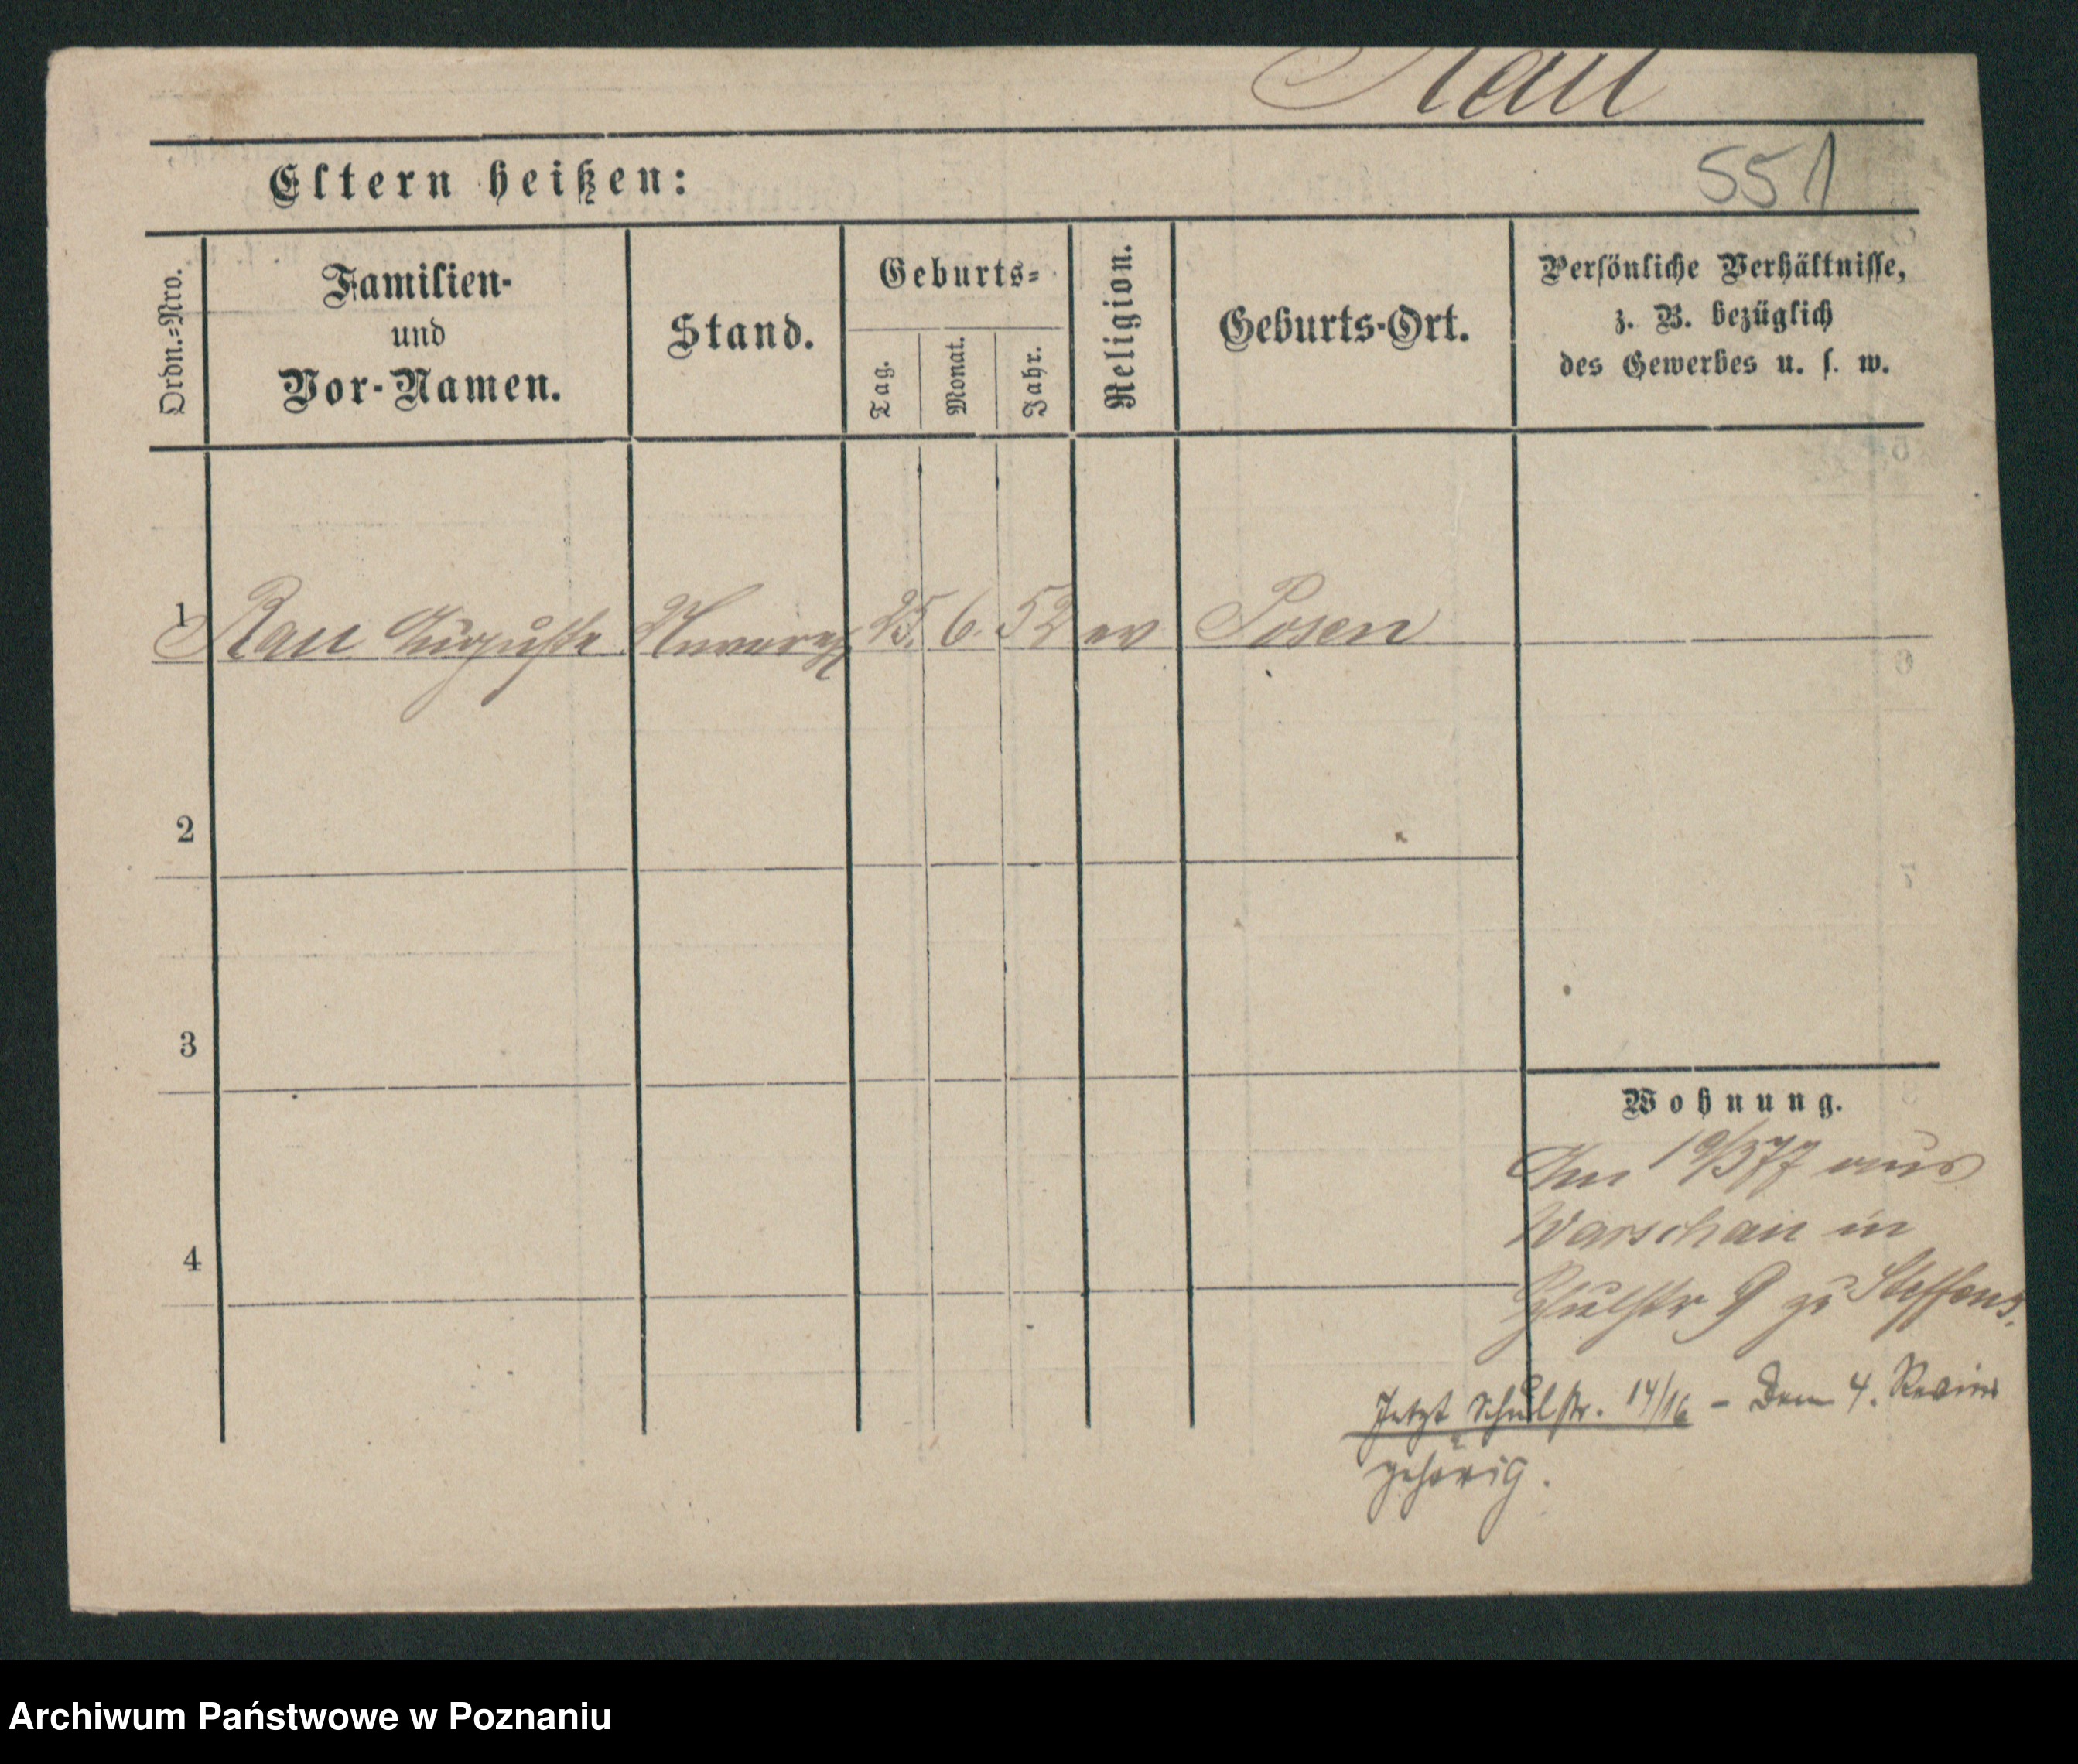 Rau
551
Eltern heißen:
Ordn.=Nro.
Familien-
und
Vor-Namen.
Stand.
Geburts=
Tag.
Monat.
Jahr.
Religion.
Geburts-Ort.
Persönliche Verhältnisse,
z. B. bezüglich
des Gewerbes u. s. w.
1 Rau Auguste 25. 6. 52 ev Posen
2
3
4
Wohnung.
Am 19/3 77 aus
Warschau in
Schulstr 9 zu Steffens.
Jetzt Schulstr. 14/16 - Dem 4. Revier
gehörig.
Archiwum Państwowe w Poznaniu